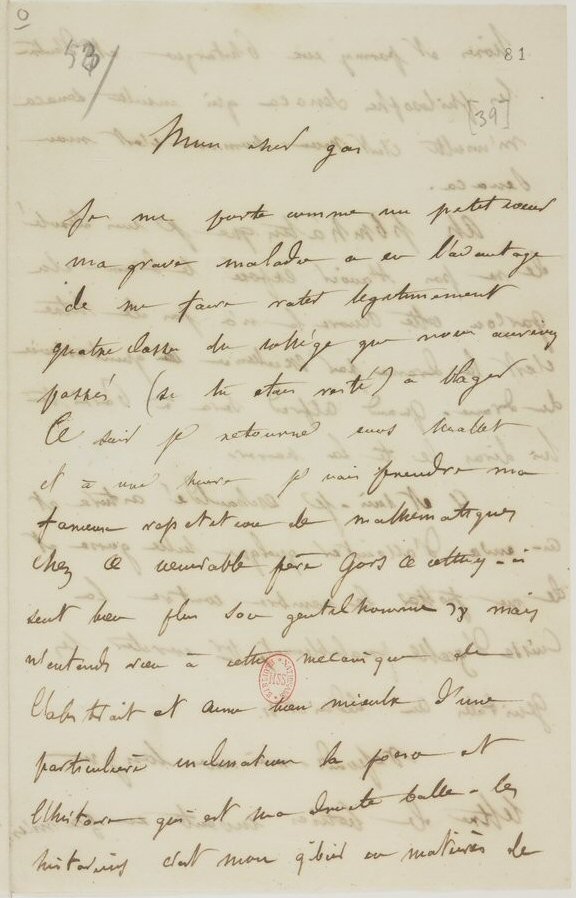 0
53
81
[39]
Mon cher gas
Je me porte comme un petit cœur
ma grave maladie a eu l'avantage
de me faire rater legitimement
quatre classe du collége que nous aurions
passés (si tu etais resté) a blaguer
Ce soir je retourne chez Mallet
et à une heure je vais prendre ma
fameuse repetition de mathematiques
chez ce venerable père Gors ce cettuy-ci
sent bien plus son gentilhomme mais
n'entends rien à cette mecanique de
l'abstrait et aime bien mieulx d'une
particulière inclination la poesie et
l'histoire qui est ma droicte balle - les
historiens c'est mon gibier en matières de
BIBLIOTHEQUE NATIONALE
MSS